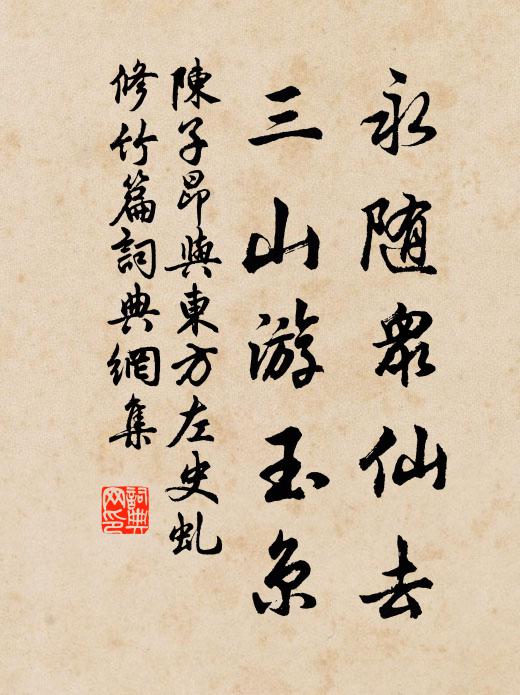 永随眾仙去
三山游玉京
陳子昂與東方左史虬
修竹篇詞典網集
詞典网印